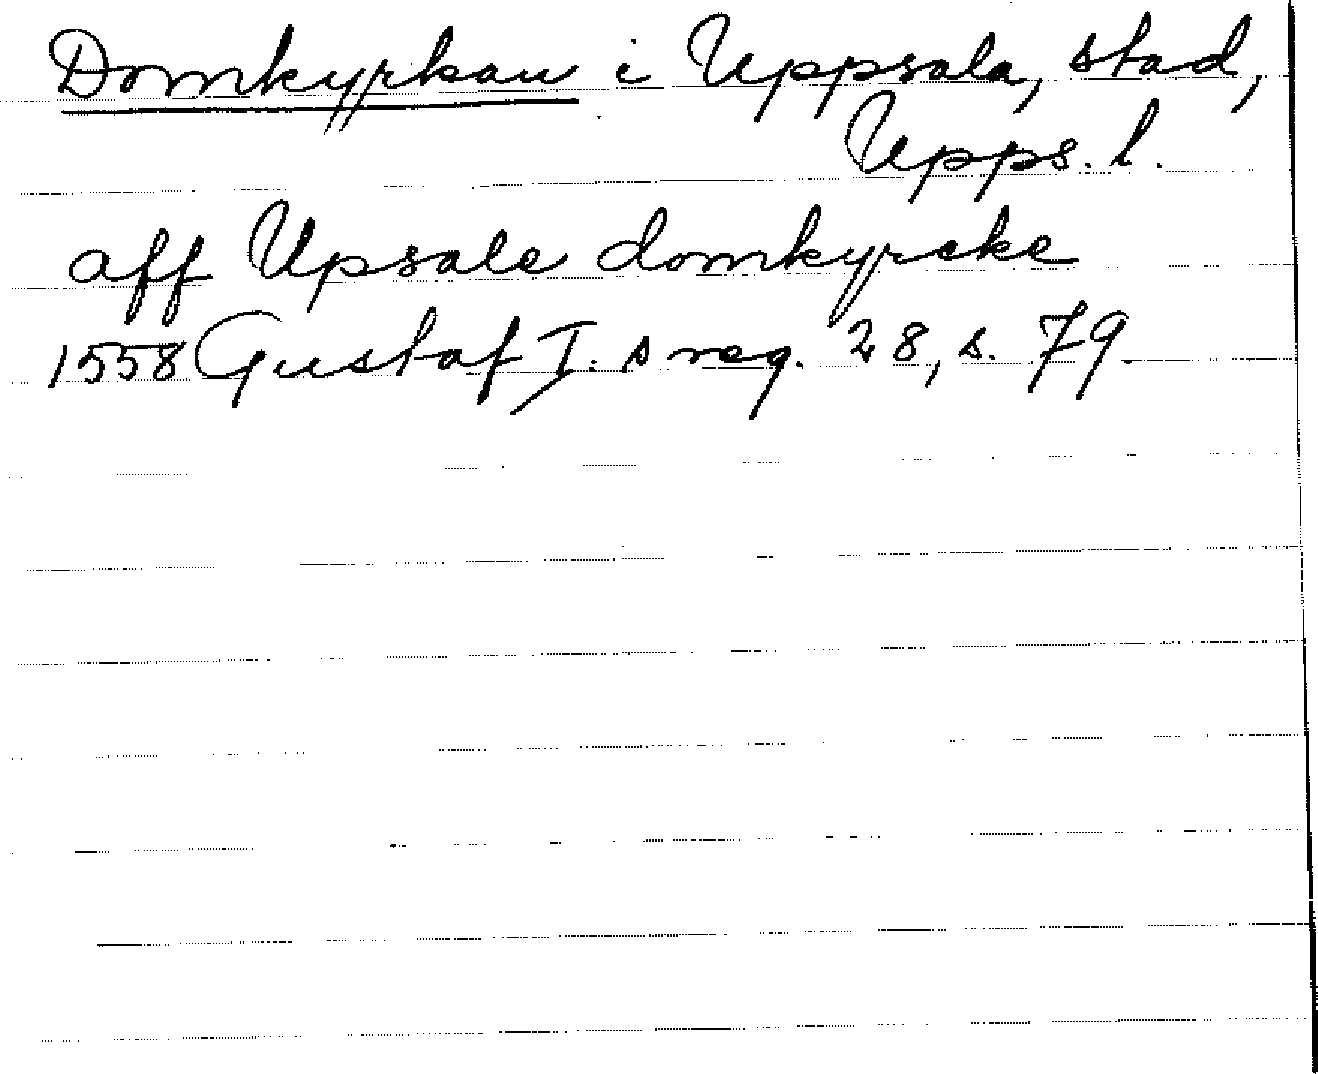 Domkyrkan i Uppsala, stad,
Upps. l.
aff Upsale domkyrcke
1558 Gustaf I:s reg. 28, s. 79.